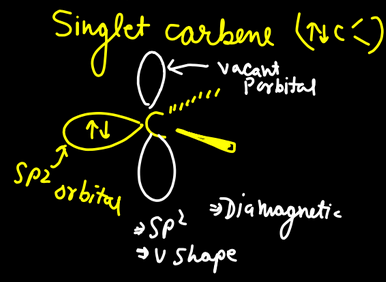 Singlet carbene (↑↓C<)
vacant
Porbital
↑↓
C
SP2
orbital
⇒ SP²
⇒ V Shape
⇒ Diamagnetic